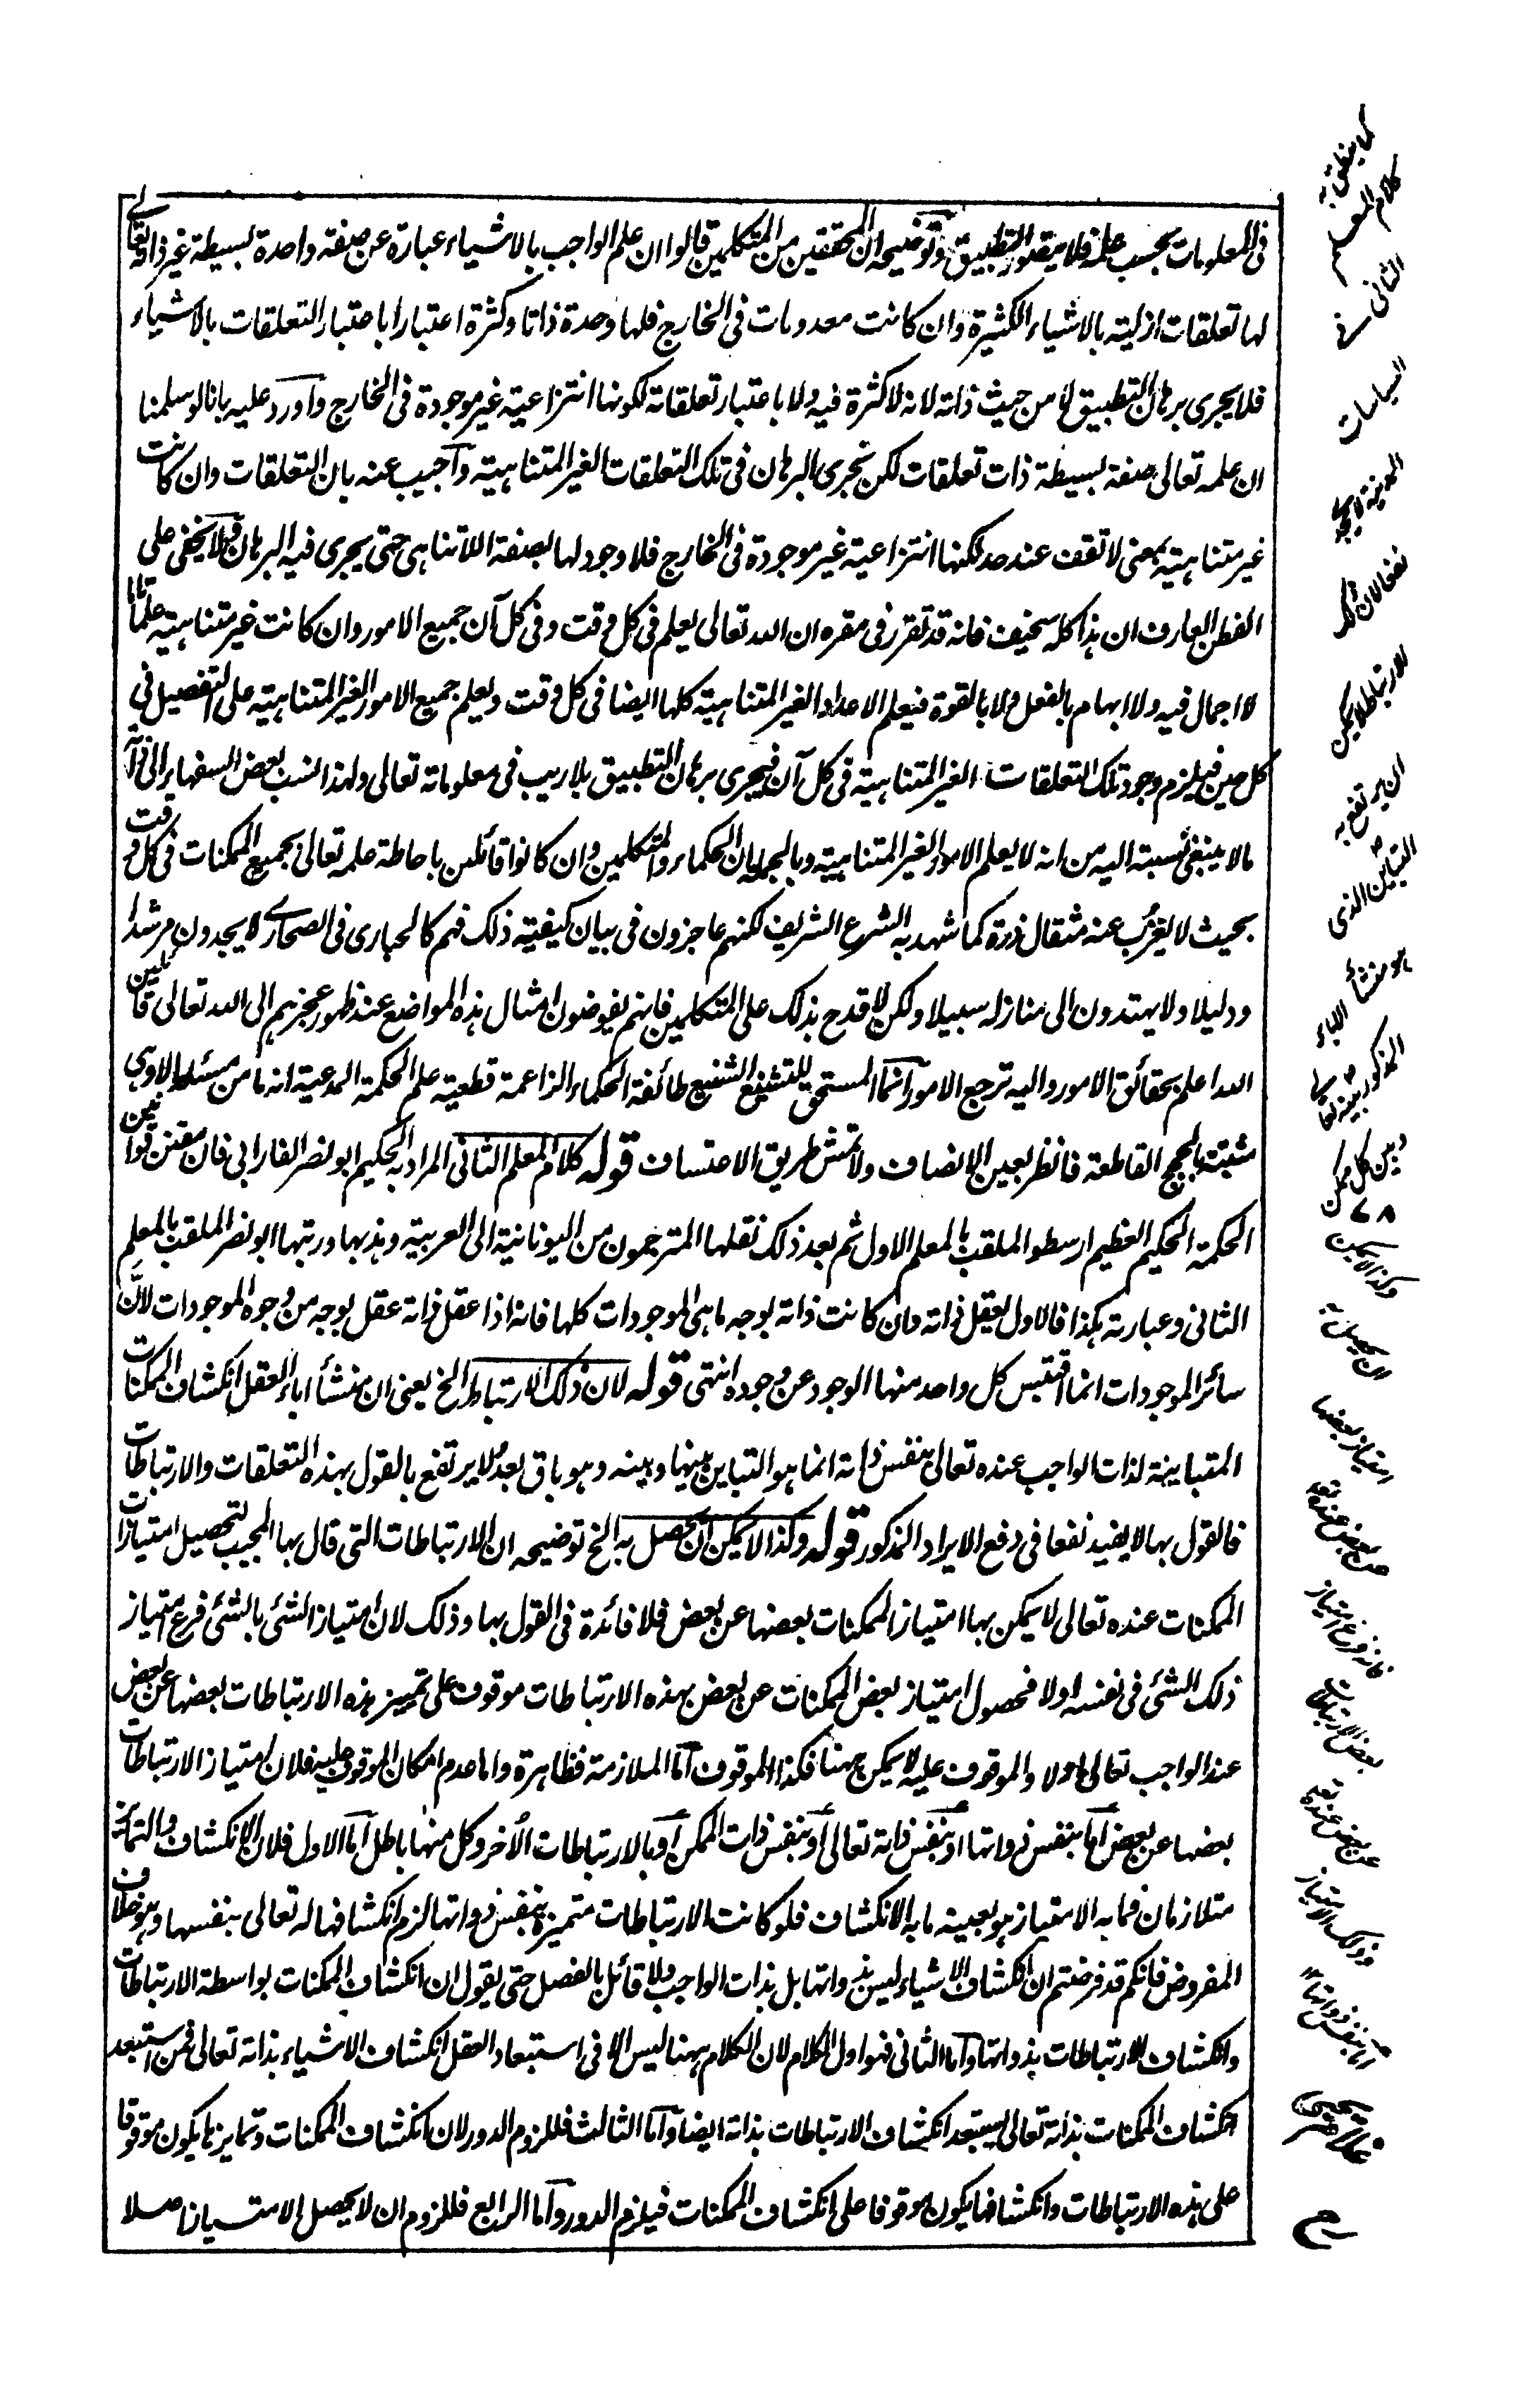 في المعلومات بحسب علمه فلا يتصور التطبيق وتوضيحه ان المحققين من المتكلمين قالوا ان علم الواجب بالاشياء عبارة عن صفته واحدة بسيطة غير ذاته تعالى
لها تعلقات ازلية بالاشياء الكثيرة وان كانت معدومات في الخارج فلها وحدة ذاتا وكثرة اعتبارا باعتبار التعلقات بالاشياء
فلا يجرى برهان التطبيق لا من حيث ذاته لانه لا كثرة فيه ولا باعتبار تعلقاته لكونها انتزاعية غير موجودة في الخارج واورد عليه بانا لو سلمنا
ان علمه تعالى صفة بسيطة ذات تعلقات لكن تجرى البرهان في تلك التعلقات الغير المتناهية واجيب عنه بان التعلقات وان كانت
غير متناهية بمعنى لا تقف عند حد لكنها انتزاعية غير موجودة في الخارج فلا وجود لها بصفة اللاتناهى حتى يجرى فيه البرهان ولا يخفى على
الفطن العارف ان هذا كله سخيف فانه قد تقرر في مقره ان الله تعالى يعلم في كل وقت وفي كل آن جميع الامور وان كانت غير متناهية علما تاما
لا اجمال فيه ولا ابهام بالفعل ولا بالقوة فيعلم الاعداد الغير المتناهية كلها ايضا في كل وقت ويعلم جميع الامور الغير المتناهية على التفصيل في
كل حين فيلزم وجود تلك التعلقات الغير المتناهية في كل آن فيجرى برهان التطبيق بلا ريب في معلوماته تعالى ولهذا نسب بعض السفهاء الى ذاته
مالا ينبغي نسبته اليه من انه لا يعلم الامور الغير المتناهية وبالجملة ان الحكماء والمتكلمين وان كانوا قائلين باحاطة علمه تعالى بجميع الممكنات في كل وقت
بحيث لا يعزب عنه مثقال ذرة كما شهد به الشرع الشريف لكنهم عاجزون في بيان كيفية ذلك فهم كالحيارى في الصحارى لا يجدون مرشدا
ودليلا ولا يهتدون الى منازله سبيلا ولكن لا قدح بذلك على المتكلمين فانهم يفوضون امثال هذه المواضع عند ظهور عجزهم الى الله تعالى قائلين
الله اعلم بحقائق الامور واليه ترجع الامور انما المستحق للتشنيع الشنيع طائفة الحكماء الزاعمة قطعية علم الحكمة المدعية انه ما من مسئلة الا وهي
مثبتة بالحجج القاطعة فانظر بعين الانصاف ولا تمش طريق الاعتساف قوله كلام المعلم الثاني المراد به الحكيم ابو نصر الفارابي فان مقنن قوانين
الحكمة الحكيم العظيم ارسطو الملقب بالمعلم الاول ثم بعد ذلك نقلها المترجمون من اليونانية الى العربية وهذبها ورتبها ابو نصر الملقب بالمعلم
الثاني وعبارته هكذا فالاول يعقل ذاته وان كانت ذاته بوجه ما هي الموجودات كلها فانه اذا عقل ذاته عقل بوجه من وجوه الموجودات لان
سائر الموجودات انما اقتبس كل واحد منها الوجود عن وجوده انتهى قوله لان ذلك الارتباط الخ يعني ان منشأ اباء العقل انكشاف الممكنات
المتباينة لذات الواجب عنده تعالى بنفس ذاته انما هو التباين بينها وبينه وهو باق بعد لا يرتفع بالقول بهذه التعلقات والارتباطات
فالقول بها لا يفيد نفعا في دفع الايراد المذكور قوله وكذا لا يمكن ان يحصل به الخ توضيحه ان الارتباطات التي قال بها المجيب لتحصيل امتيازات
الممكنات عنده تعالى لا يمكن بها امتياز الممكنات بعضها عن بعض فلا فائدة في القول بها وذلك لان امتياز الشئ بالشئ فرع امتياز
ذلك الشئ في نفسه اولا فحصول امتياز بعض الممكنات عن بعض بهذه الارتباطات موقوف على تميز هذه الارتباطات بعضها عن بعض
عند الواجب تعالى اولا والموقوف عليه لا يمكن ههنا فكذا الموقوف اما الملازمة فظاهرة واما عدم امكان الموقوف عليه فلان امتياز الارتباطات
بعضها عن بعض اما بنفس ذواتها او بنفس ذاته تعالى او بنفس ذات الممكن او بالارتباطات الأخر وكل منها باطل اما الاول فلان الانكشاف والتمائز
متلازمان فما به الامتياز هو بعينه ما به الانكشاف فلو كانت الارتباطات متميزة بنفس ذواتها لزم انكشافها له تعالى بنفسها وهو خلاف
المفروض فانكم قد فرضتم ان انكشاف الاشياء ليس بذواتها بل بذات الواجب ولا قائل بالفصل حتى يقول ان انكشاف الممكنات بواسطة الارتباطات
وانكشاف الارتباطات بذواتها واما الثاني فهو اول الكلام لان الكلام ههنا ليس الا في استبعاد العقل انكشاف الاشياء بذاته تعالى فمن استبعد
انكشاف الممكنات بذاته تعالى يستبعد انكشاف الارتباطات بذاته ايضا واما الثالث فللزوم الدور لان انكشاف الممكنات وتمايزها يكون موقوفا
على هذه الارتباطات وانكشافها يكون موقوفا على انكشاف الممكنات فيلزم الدور واما الرابع فللزوم ان لا يحصل الامتياز اصلا
كما ينطق به
كلام المعلم
الثاني في
السياسات
المدنية
نفعا لان ذلك
الارتباط لا يمكن
ان يرتفع به
التباين الذى
هو منشأ الاباء
المذكور بينه تعالى
وبين كل ممكن
٧٨
وكذا لا يمكن
ان يحصل به
امتياز بعضها
عن بعض عنده تعالى
فانه فرع امتياز
بعض الارتباطات
عن بعض عنده تعالى
وذلك الامتياز
اما بنفس ذواتها